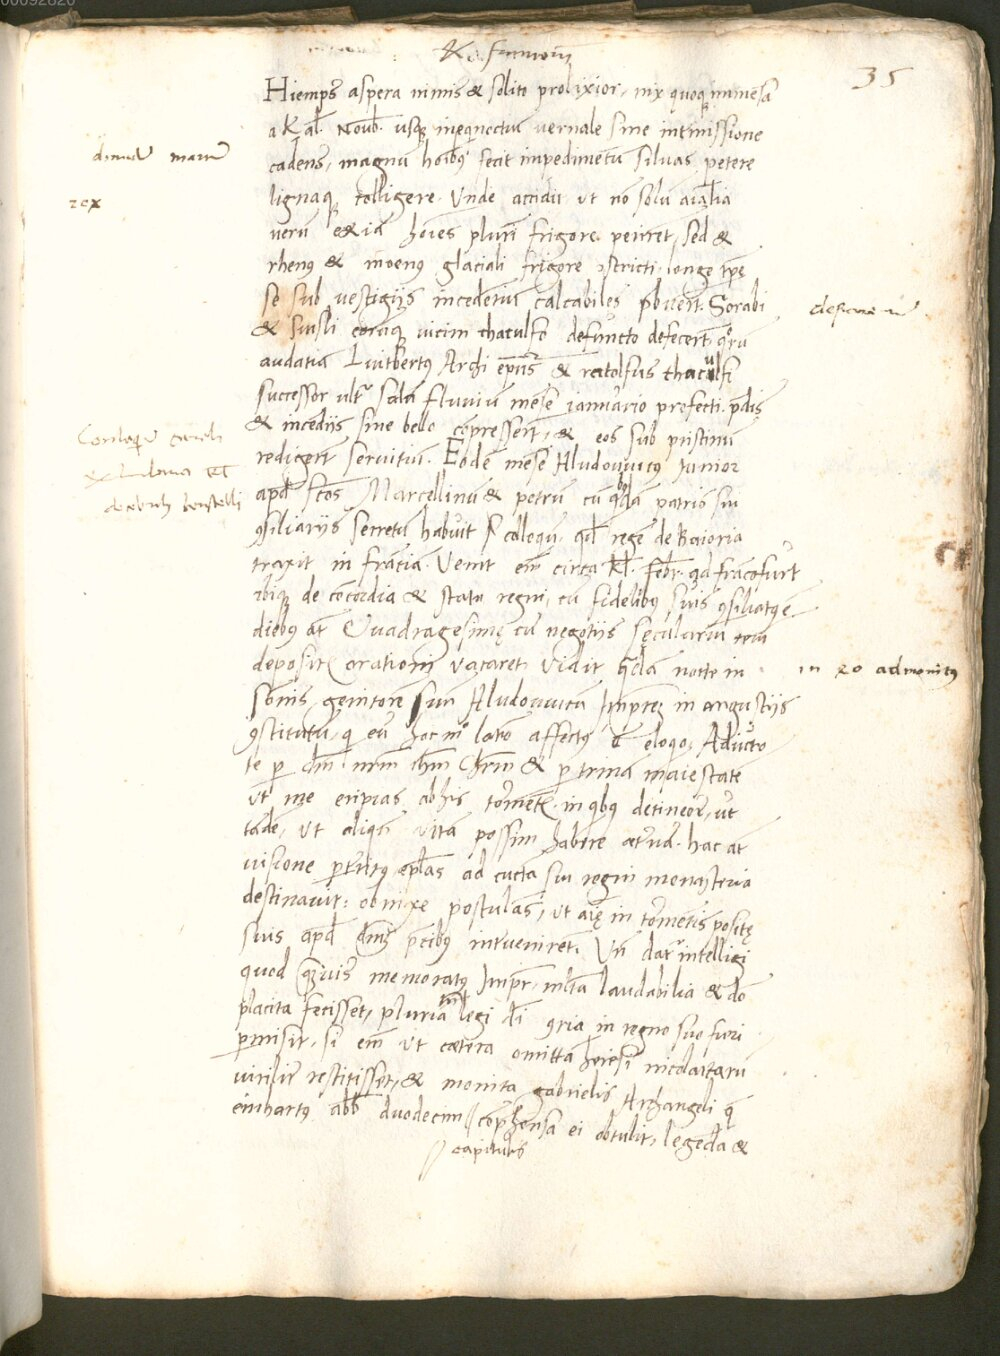 35
Hiemps aspera nimis & solito prolixior, nix quoq immesa
a Kal. Noub. usq ineqinoctiu vernale sine intmissione
cadens, magnu hoibq fecit impedimetu silvas petere
lignaq colligere. Unde accidit ut no solu aialia
veru &ia hoies pluri frigore periret, sed &
rhenq & moenq glaciali frigore ɔstricti, longe tpe
se sub vestigijs incedentiu calcabiles pbuert. Sorabi
& siusli eoruq vicini thaculfo defuncto defecert, qru
audatia Luitbertq Archi epus & ratolfus thaculfi
successor ultr sala fluviu mese januario profecti pdis
& incedijs sine bello copressert, & eos sub pristinu
redigert servitiu. Eode mese Hludovvicq iunior
apd scos Marcellinu & petru cu qbda patris sui
ɔsiliariis secretu habuit colloqu. qd rege de Baioria
traxit in fracia. Venit em circa Kl. febr. ad fracofurt
ibiq de cocordia & statu regni, cu fidelibq suis ɔsiliatq e
diebq at Quadragesime cu negotijs seculariu reru
deposit orationi vacaret, vidit qda nocte in
in somnis admonitq
somis genitore suu Hludovvicu Impre in angustijs
ɔstitutu, qi eu hoc mo latio affectq e eloqio, Adiuro
te p dm nrm ihm Chrm & p trina maiestate
ut me eripias abhis tormet in qbq detineor, ut
tade, ut aliqn vita possim habere aetna. hac at
visione pterritq eplas ad cucta sui regni monasteria
destinavit: obnixe postulas, ut aie in tormetis posite
suis apd dnm pcibq interveniret. Un datr intelligi
quod qavis memoratq Impr, mlta laudabilia & do
placita fecisset, pluria tn legi di ɔria in regno suo fieri
pmisit, si em ut caetera omitta heresi nicolaitaru
virilir restitisset, & monita gabrielis Archangeli q
einhartq abb duodecim // coprhensa ei obtulit, legeda &
// capitulis